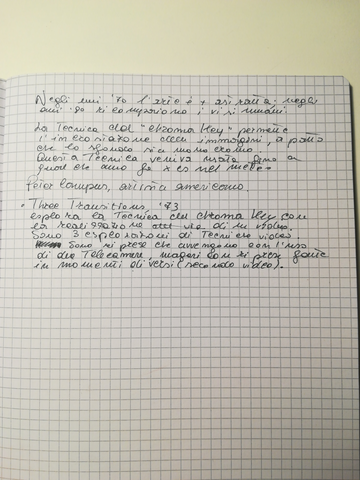 Negli anni '70 l'arte è + astratta; negli
anni '80 ricompaiono i visi umani.
La Tecnica del "chroma key" permette
l'incrostazione delle immagini, a patto
che lo sfondo sia monocromo.
Questa Tecnica veniva usata fino a
qualche anno fa x es nel meteo
Peter Campus, artista americano.
• Three Transitions, '73
esplora la Tecnica del chroma key con
la realizzazione di un video.
Sono 3 esplorazioni di Tecniche video.
Sono riprese che avvengono con l'uso
di due Telecamere, magari con riprese fatte
in momenti diversi (secondo video).